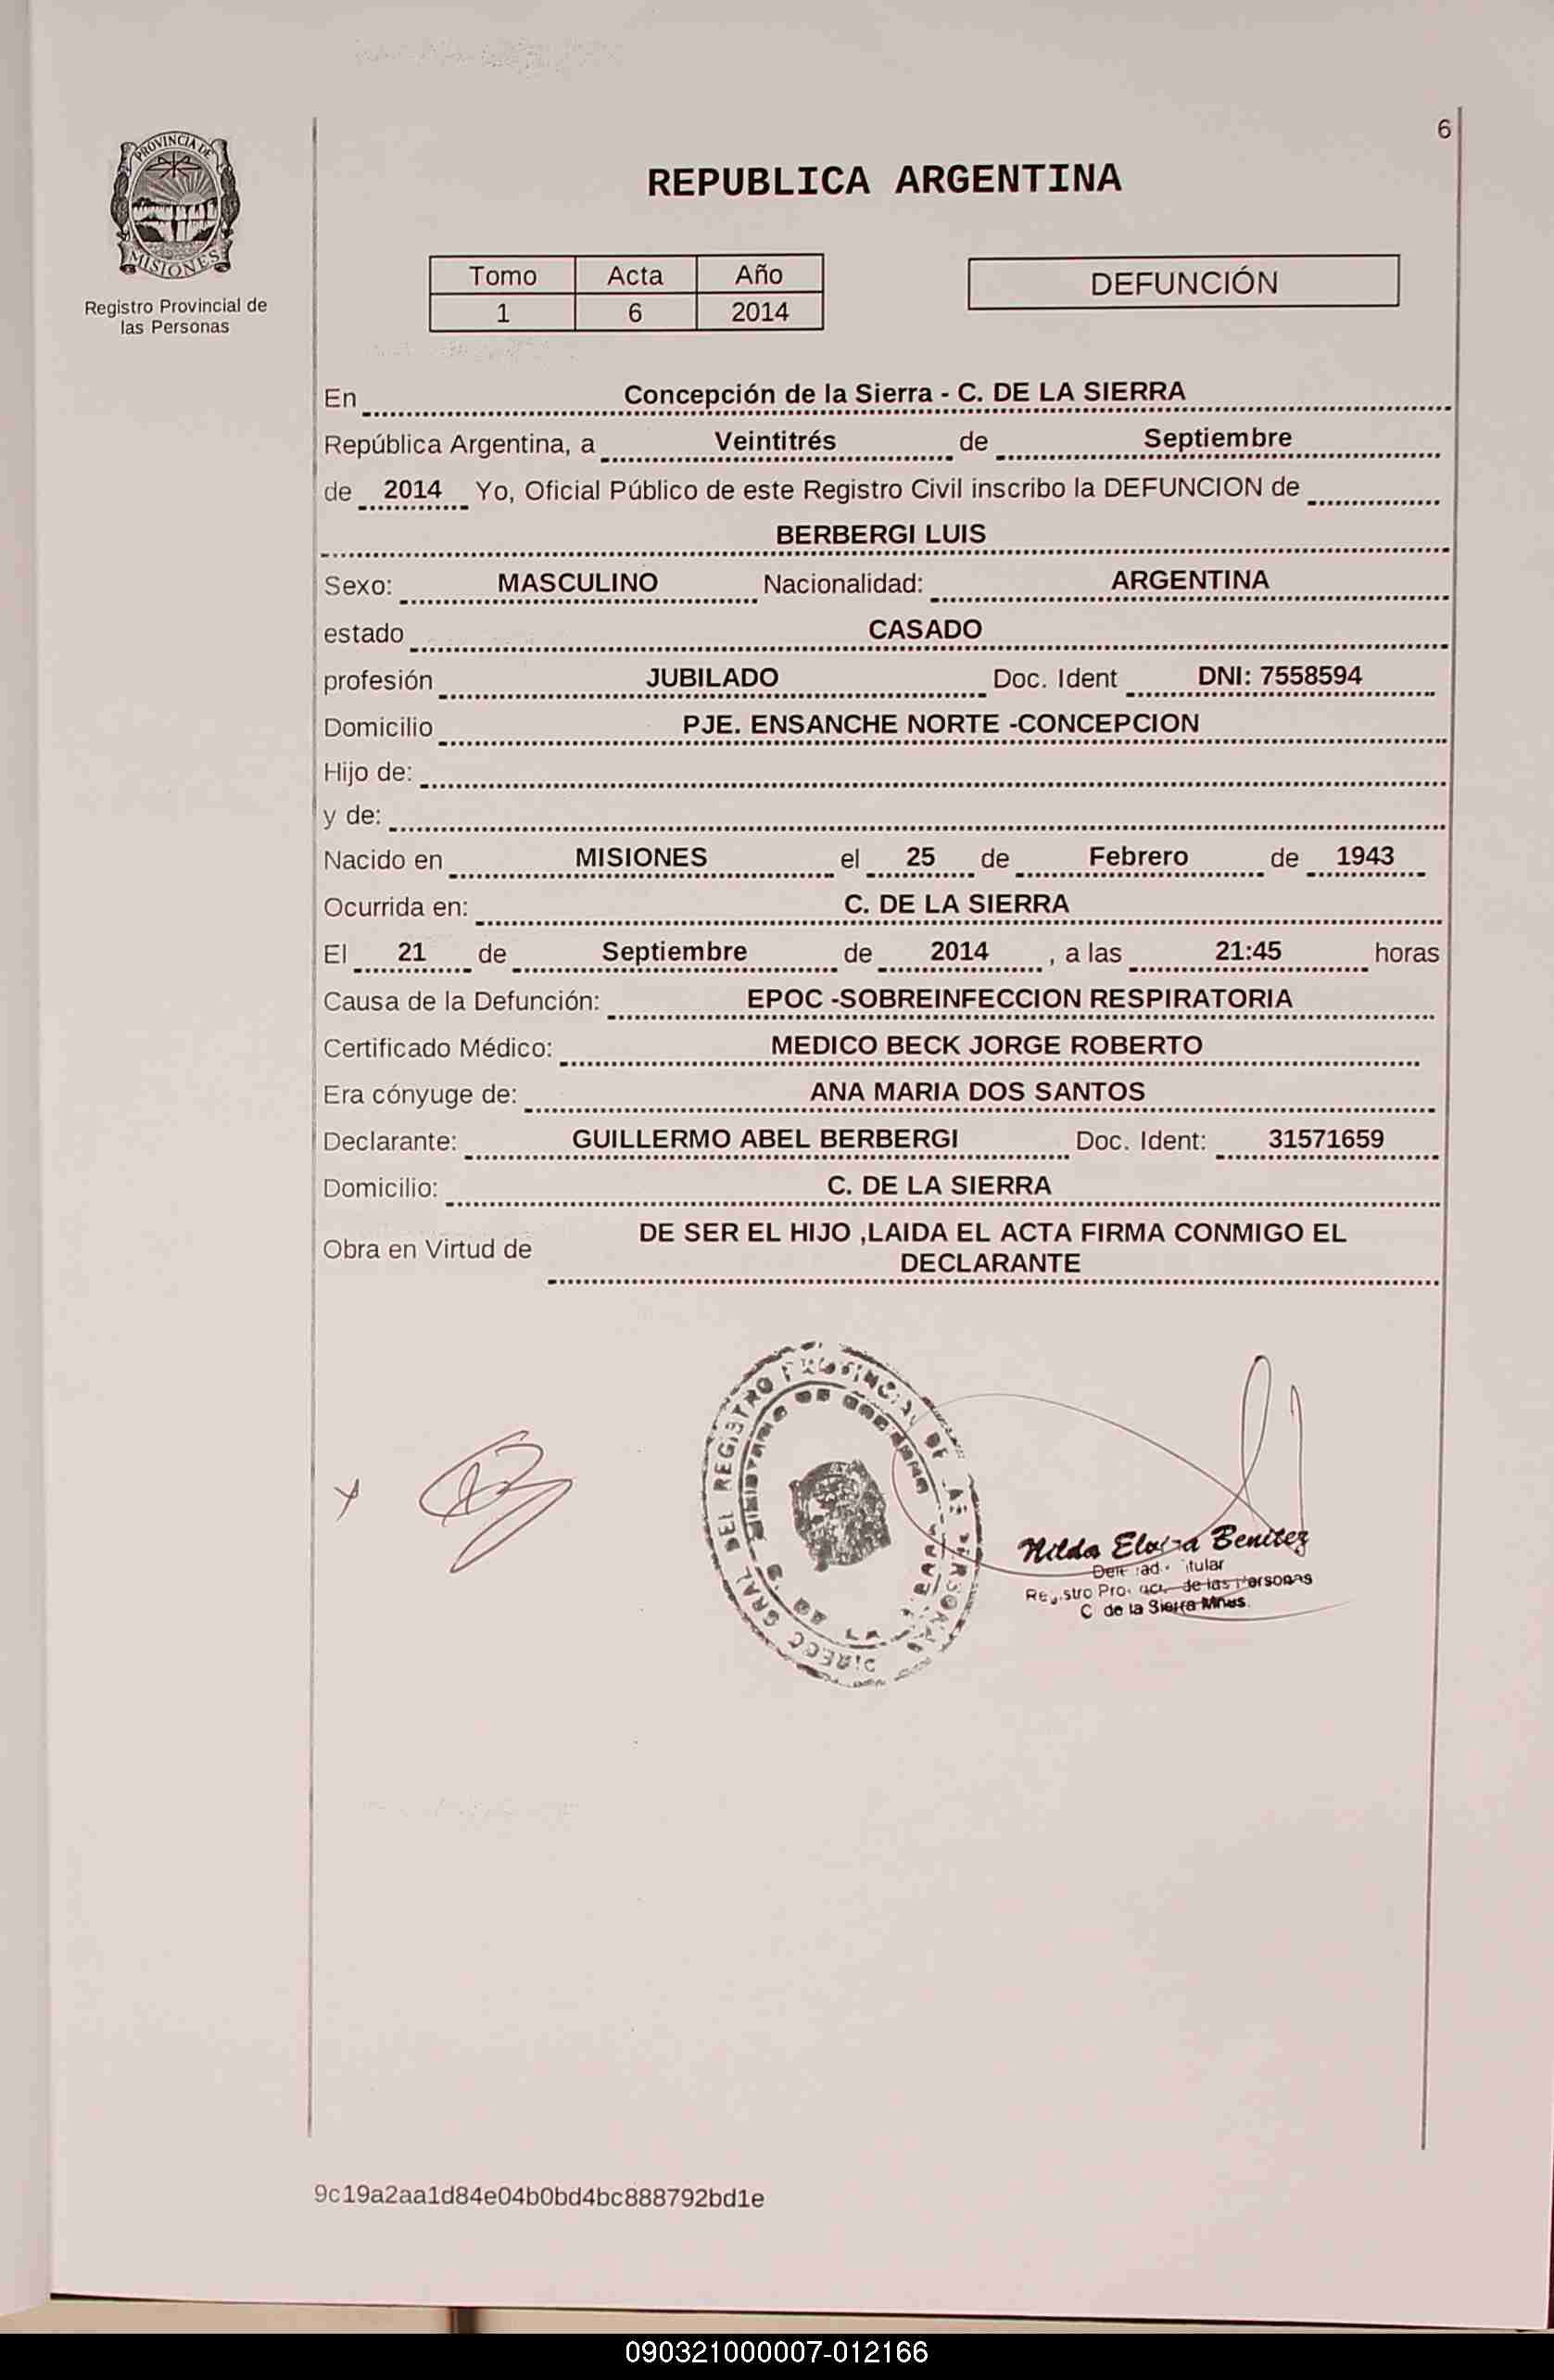 6
PROVINCIA DE
MISIONES
Registro Provincial de
las Personas
REPUBLICA ARGENTINA
Tomo Acta Año
1 6 2014
DEFUNCIÓN
En Concepción de la Sierra - C. DE LA SIERRA
República Argentina, a Veintitrés de Septiembre
de 2014 Yo, Oficial Público de este Registro Civil inscribo la DEFUNCION de
BERBERGI LUIS
Sexo: MASCULINO Nacionalidad: ARGENTINA
estado CASADO
profesión JUBILADO Doc. Ident DNI: 7558594
Domicilio PJE. ENSANCHE NORTE -CONCEPCION
Hijo de:
y de:
Nacido en MISIONES el 25 de Febrero de 1943
Ocurrida en: C. DE LA SIERRA
El 21 de Septiembre de 2014 , a las 21:45 horas
Causa de la Defunción: EPOC -SOBREINFECCION RESPIRATORIA
Certificado Médico: MEDICO BECK JORGE ROBERTO
Era cónyuge de: ANA MARIA DOS SANTOS
Declarante: GUILLERMO ABEL BERBERGI Doc. Ident: 31571659
Domicilio: C. DE LA SIERRA
Obra en Virtud de DE SER EL HIJO ,LAIDA EL ACTA FIRMA CONMIGO EL
DECLARANTE
DIRECC GRAL DEL REGISTRO PROVINCIAL DE LAS PERSONAS
Nilda Benitez
de las Personas
C de la Sierra Mnes.
9c19a2aa1d84e04b0bd4bc888792bd1e
090321000007-012166